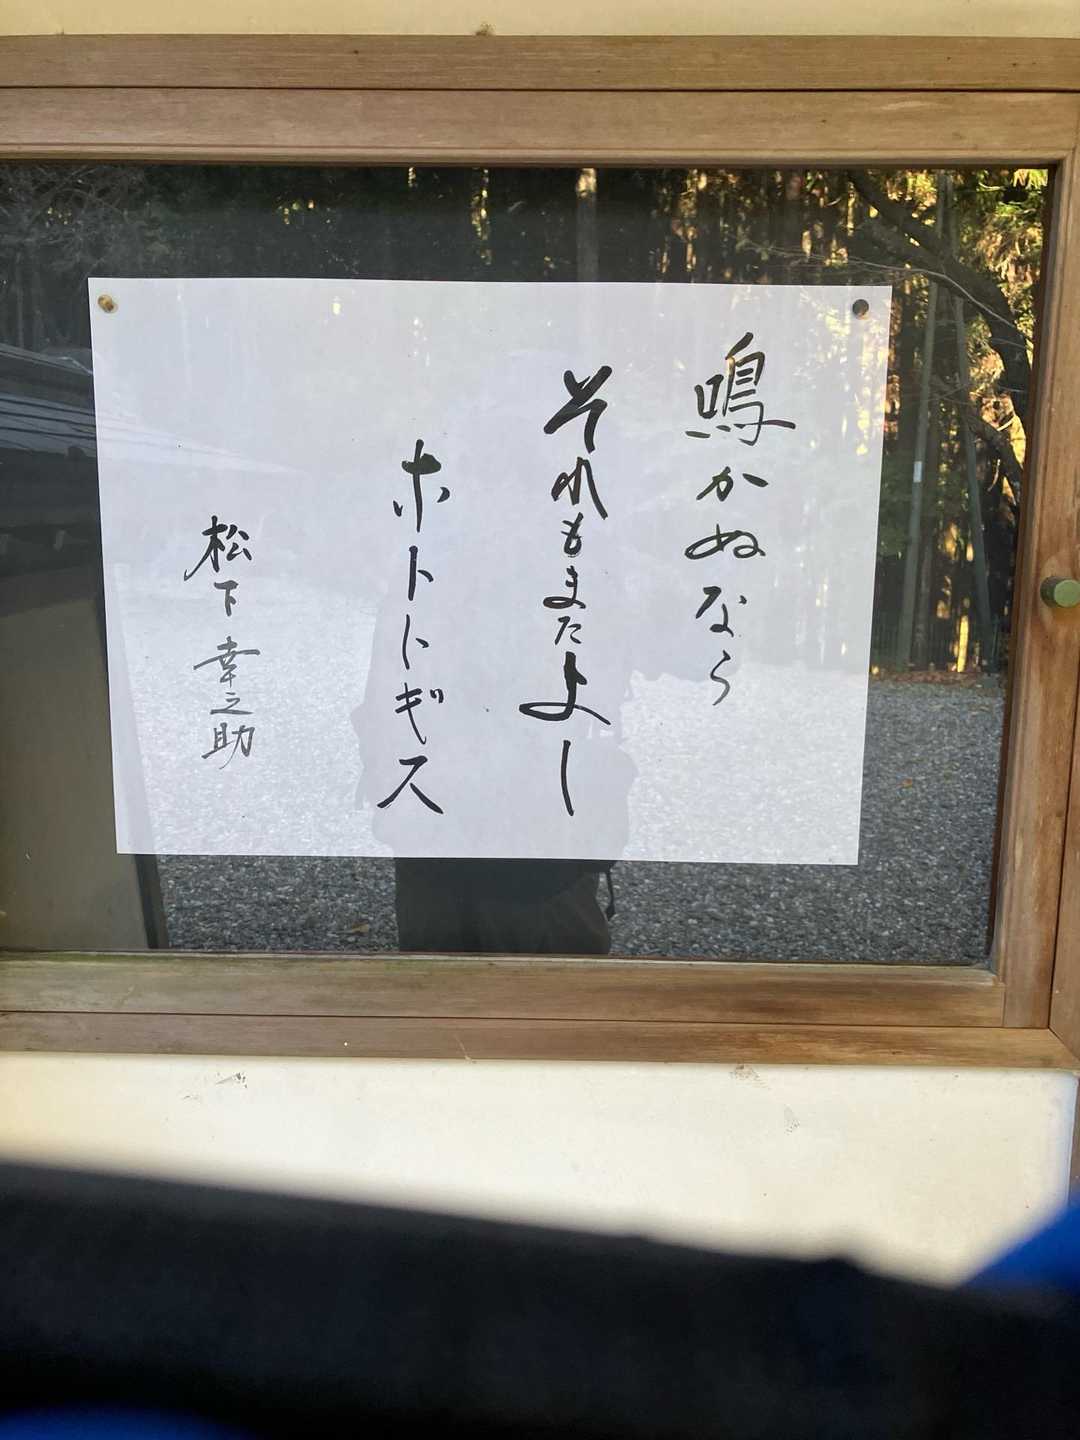 鳴かぬなら
それもまたよし
ホトトギス
松下幸之助